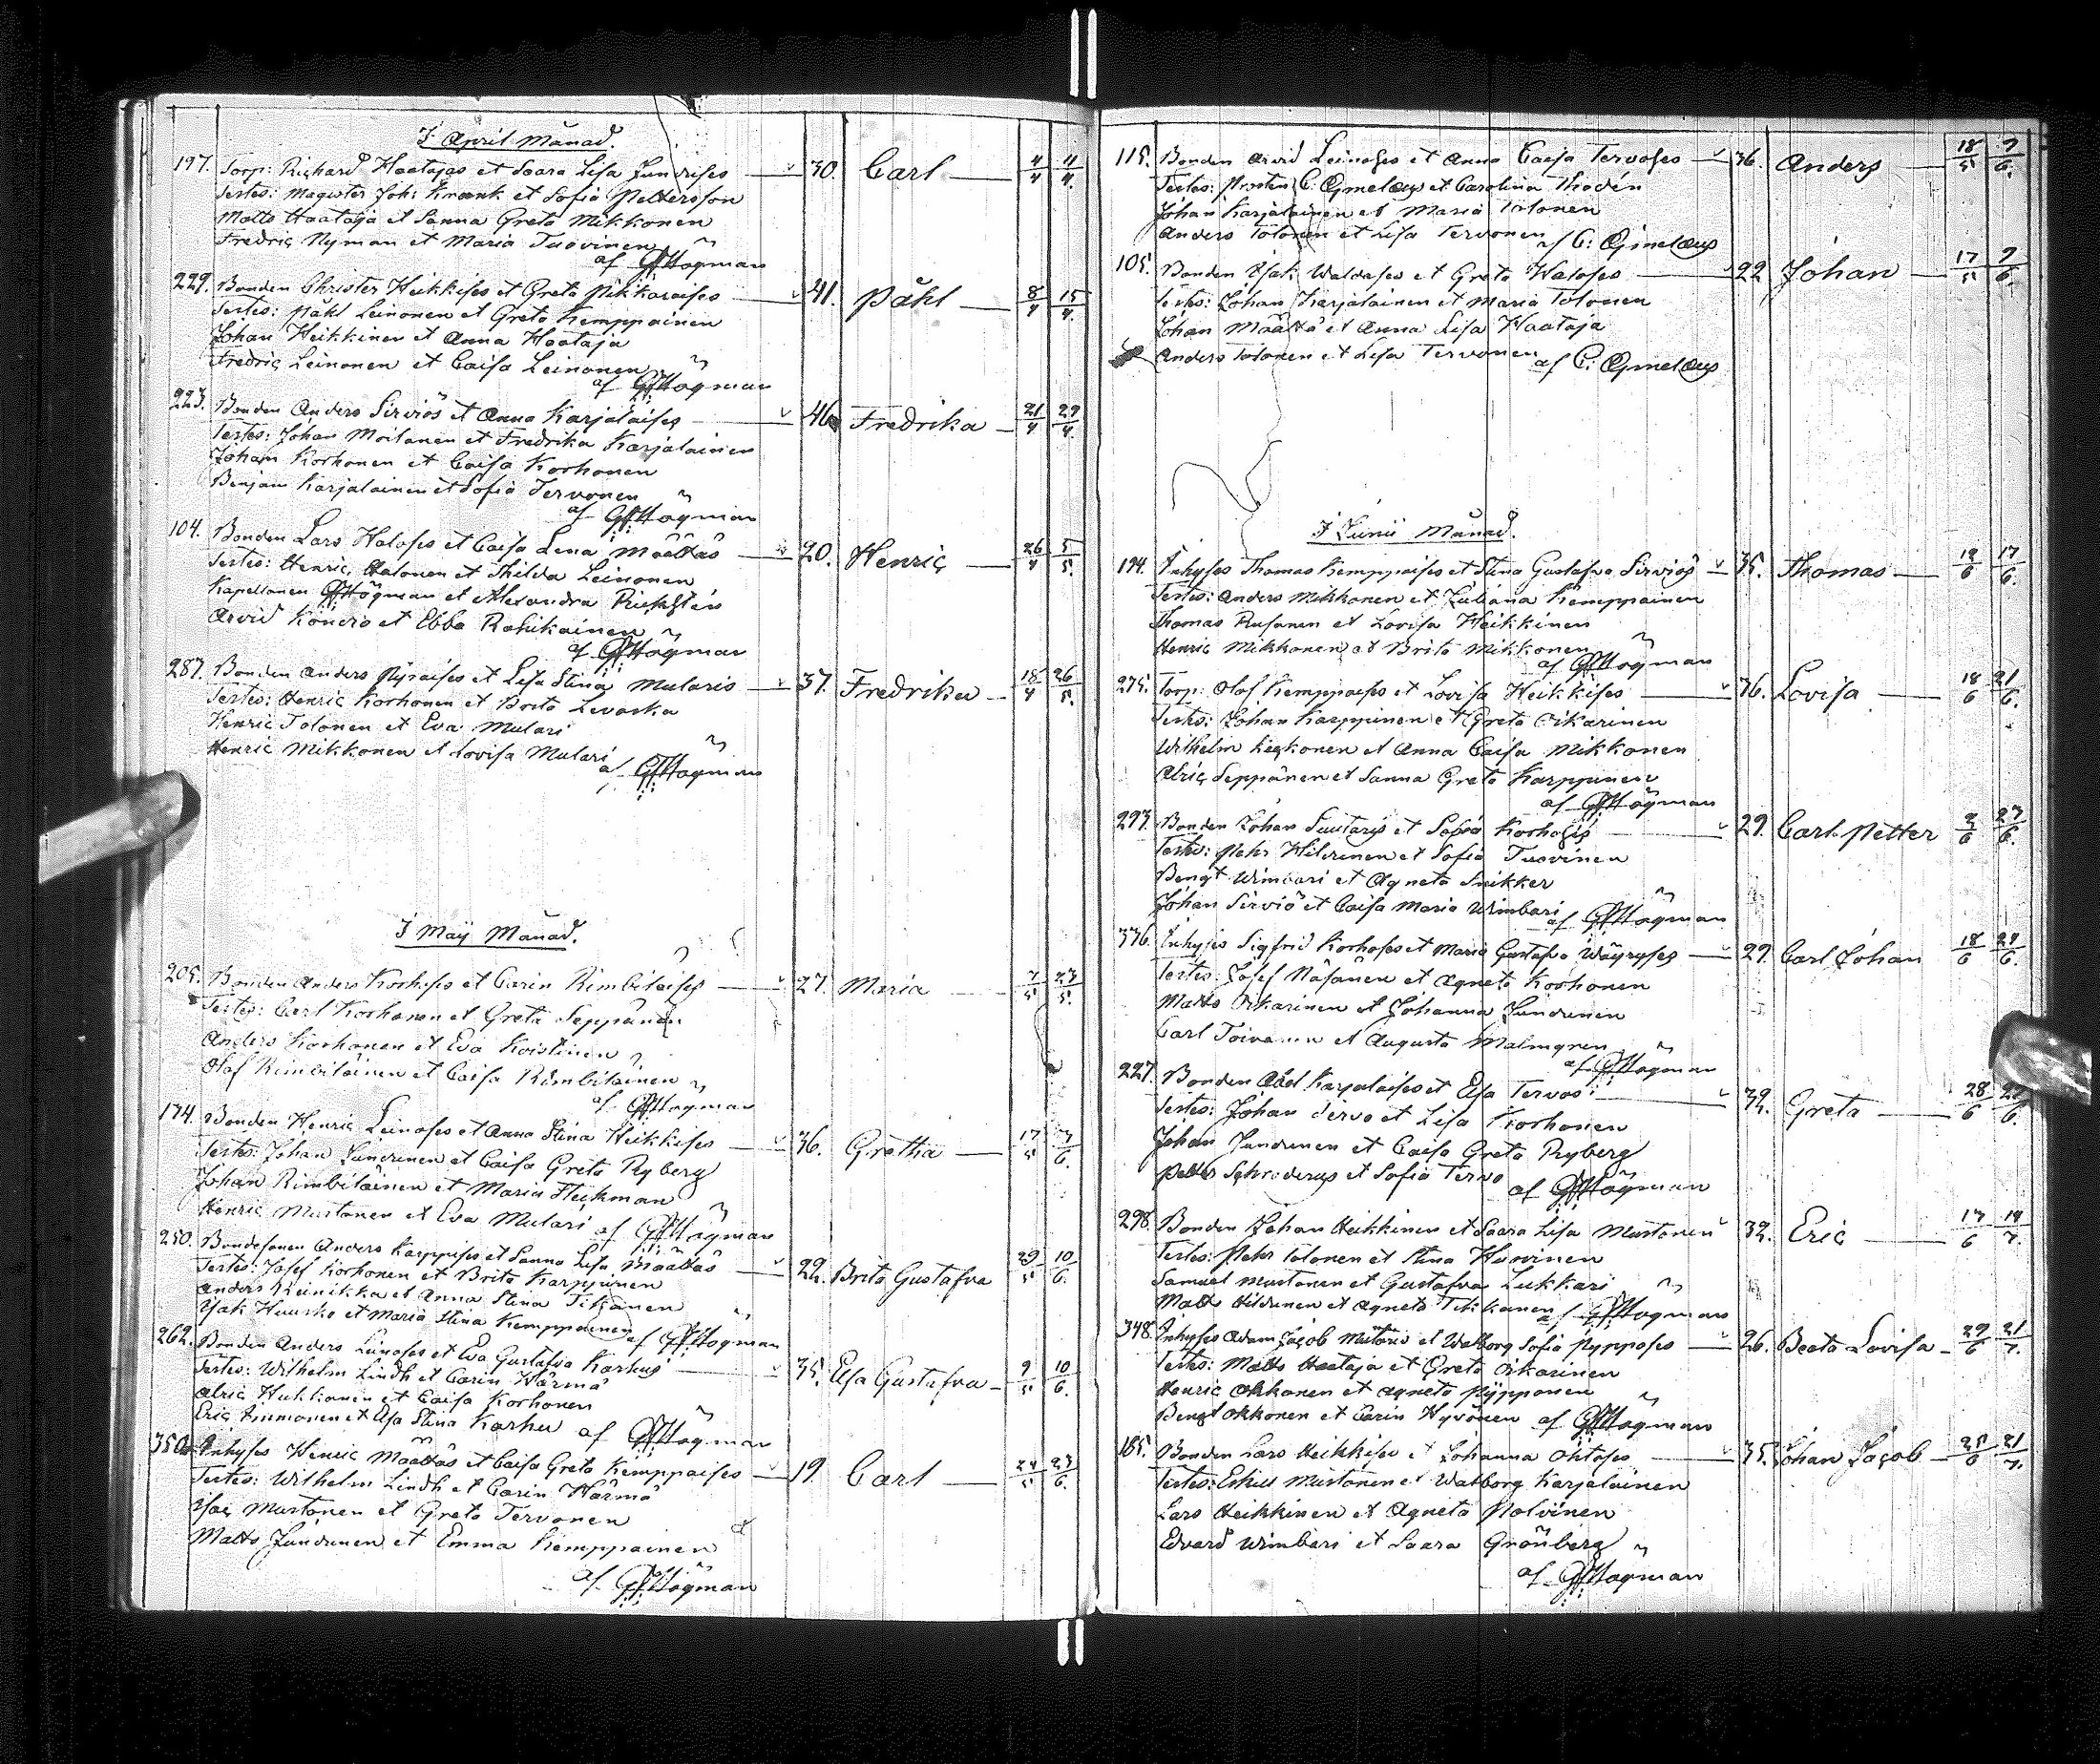 I April Månad.
197. Torp: Richard Haatajas et Saara Lisa Jundises — 30. Carl — 4/4 4/4.
Testes: Magister Joh: Kraenk et Sofia Pettersson
Matts Haataja et Sanna Greta Mikkonen
Fredric Nyman et Maria Tuovinen
af GfHögman
229. Bonden Christer Heikkises et Greta Pikkaraises — 41. Påhl — 8/4 15/4.
Testes: Påhl Leinonen et Greta Kemppainen
Johan Heikkinen et Anna Haataja
Fredric Leinonen et Caisa Leinonen
af GfHögman
223. Bonden Anders Sirviös et Anna Karjalaises — 46. Fredrika — 21/4 29/4.
Testes: Johan Moilanen et Fredrika Karjalainen
Johan Korhonen et Caisa Korhonen
Benjam Karjalainen et Sofia Tervonen
af GfHögman
104. Bonden Lars Haloses et Caisa Lena Määttäs — 20. Henric — 26/4 5/5.
Testes: Henric Halonen et Thilda Leinonen
Kapellanen GfHögman et Alexandra
Arvid et Ebba Rahikainen
af GfHögman
287. Bonden Anders et Lisa Stina Mularis — 37. Fredrika — 18/4 26/5.
Testes: Henric Korhonen et Brita Levaska
Henric Tolonen et Eva Mulari
Henric Mikkonen et Lovisa Mulari
af GfHögman
I Maij Månad.
205. Bonden Anders Korhoses et Carin Rimbiläises — 27. Maria — 7/5 23/5.
Testes: Carl Korhonen et Greta Seppänen
Anders Korhonen et Eva Koistinen
Olof Rimbiläinen et Caisa Rimbiläinen
af GfHögman
174. Bonden Henric Leinoses et Anna Stina Heikkises — 36. Gretha — 17/5 7/6.
Testes: Johan Jundunen et Caisa Greta Ryberg
Johan Rimbiläinen et Maria Fleckman
Henric Mustonen et Eva Mulari af GfHögman
250. Bondesonen Anders Karppises et Sanna Lisa Määttäs — 22. Brita Gustafva 29/5 10/6.
Testes: Josef Korhonen et Brita Karppinen
Anders Reinikka et Anna Stina Tikkanen
Isak Huusko et Maria Stina Kemppainen af GfHögman
262. Bonden Anders Leinoses et Eva Gustafva Karhus — 35. Elsa Gustafva — 9/5 10/6.
Testes: Wilhelm Lindh et Carin Härmä
Alric Hukkanen et Caisa Korhonen
Eric et Elsa Stina Karhu af GfHögman
350. Inhyses Henric Määttäs et Caisa Greta Kemppaises — 19. Carl — 24/5 23/6.
Testes: Wilhelm Lindh et Carin Härmä
Isac Mustonen et Greta Tervonen
Matts Jundunen et Emma Kemppainen
af GfHögman
115. Bonden Arvid Leinoses et Anna Caisa Tervoses — 36. Anders — 18/5 7/6.
Testes: Prosten C: Gmelæus et Carolina Thodén
Johan Karjalainen et Maria Tolonen
Anders Tolonen et Lisa Tervonen af C: Gmelæus
105. Bonden Isak et Greta Haloses — 22 Johan — 17/5 7/6.
Testes: Johan Karjalainen et Maria Tolonen
Johan Määttä et Anna Lisa Haataja
Anders Tolonen et Lisa Tervonen af C: Gmelæus
I Junii Månad.
194. Inhyses Thomas Kemppaises et Stina Gustafva Sirviös — 35. Thomas — 12/6 17/6.
Testes: Anders Mikkonen et Juliana Kemppainen
Thomas Rusanen et Lovisa Heikkinen
Henric Mikkonen et Brita Mikkonen
af GfHögman
275. Torp: Olof Kemppaises et Lovisa Heikkises — 36. Lovisa — 18/6 21/6.
Testes: Johan Karppinen et Greta Oikarinen
Wilhelm et Anna Caisa Mikkonen
Alric Seppänen et Sanna Greta Karppinen
af GfHögman
293. Bonden Johan Suutaris et Sofia Korhoses — 29. Carl Petter 2/6 27/6.
Testes: Pehr Hildunen et Sofia Tuovinen
Bengt Wimbari et Agneta Snikker
Johan Sirviö et Caisa Maria Wimbari af GfHögman
376. Inhyses Sigfrid Korhoses et Maria Gustafva Wäyryses — 29. Carl Johan 18/6 29/6.
Testes: Josef Näsänen et Agneta Korhonen
Matts Oikarinen et Johanna Jundunen
Carl Toivanen et Augusta Malmgren
af GfHögman
227. Bonden Abel Karjalaises et Elsa Tervos — 39. Greta — 28/6
Testes: Johan Tervo et Lisa Korhonen
Johan Jundunen et Caisa Greta Ryberg
Petter Schroderus et Sofia Tervo af GfHögman
298. Bonden Johan Heikkinen et Saara Lisa Mustonen 32. Eric — 17/6 19/7.
Testes: Pehr Tolonen et Stina Huovinen
Samuel Mustonen et Gustafva Lukkari
Matts Hildunen et Agneta Tikkanen af GfHögman
348. Inhyses Adam Jacob Mularis et Walborg Sofia Pypposes — 26. Beata Lovisa — 29/6 21/7.
Testes: Matts Haataja et Greta Oikarinen
Henric Okkonen et Agneta Pypponen
Bengt Okkonen et Carin Hyvönen af GfHögman
185. Bonden Lars Heikkises et Johanna Ohtoses — 35. Johan Jacob — 25/6 21/7.
Testes: Eskil Mustonen et Walborg Karjalainen
Lars Heikkinen et Agneta Polvinen
Edvard Wimbari et Saara Grönberg
af GfHögman